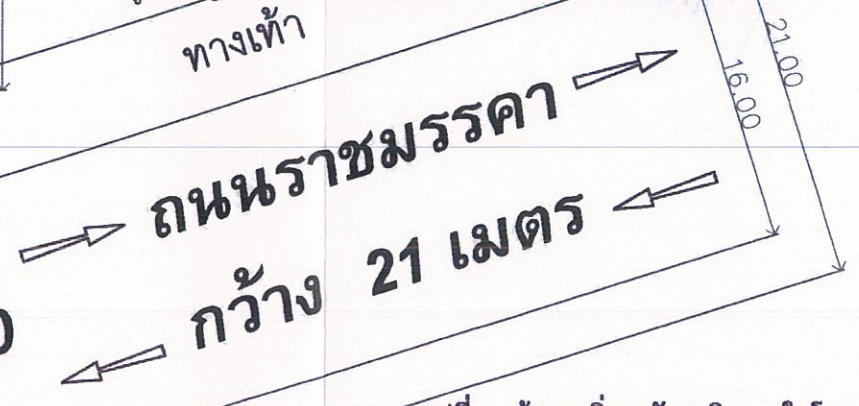 ทางเท้า
21.00
16.00
ถนนราชมรรคา
กว้าง 21 เมตร